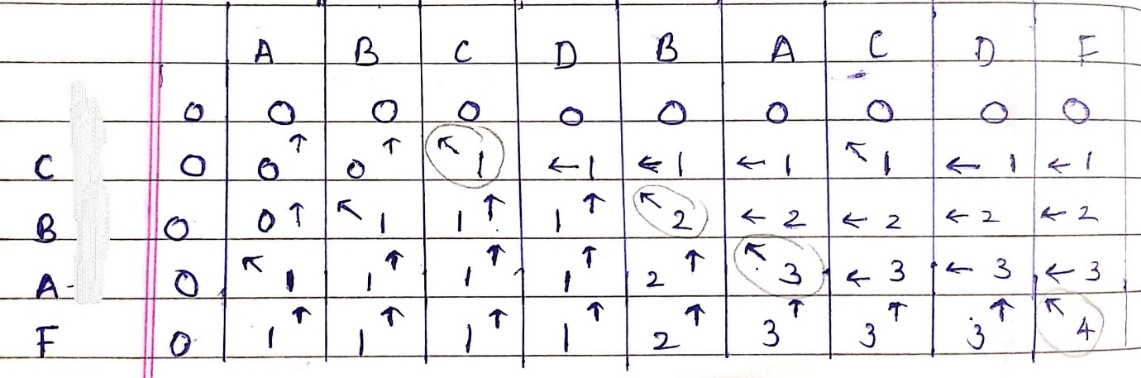 A B C D B A C D F
0 0 0 0 0 0 0 0 0 0
C 0 0↑ 0↑ ↖1 ←1 ←1 ←1 ↖1 ←1 ←1
B 0 0↑ ↖1 1↑ 1↑ ↖2 ←2 ←2 ←2 ←2
A 0 ↖1 1↑ 1↑ 1↑ 2↑ ↖3 ←3 ←3 ←3
F 0 1↑ 1↑ 1↑ 1↑ 2↑ 3↑ 3↑ 3↑ ↖4